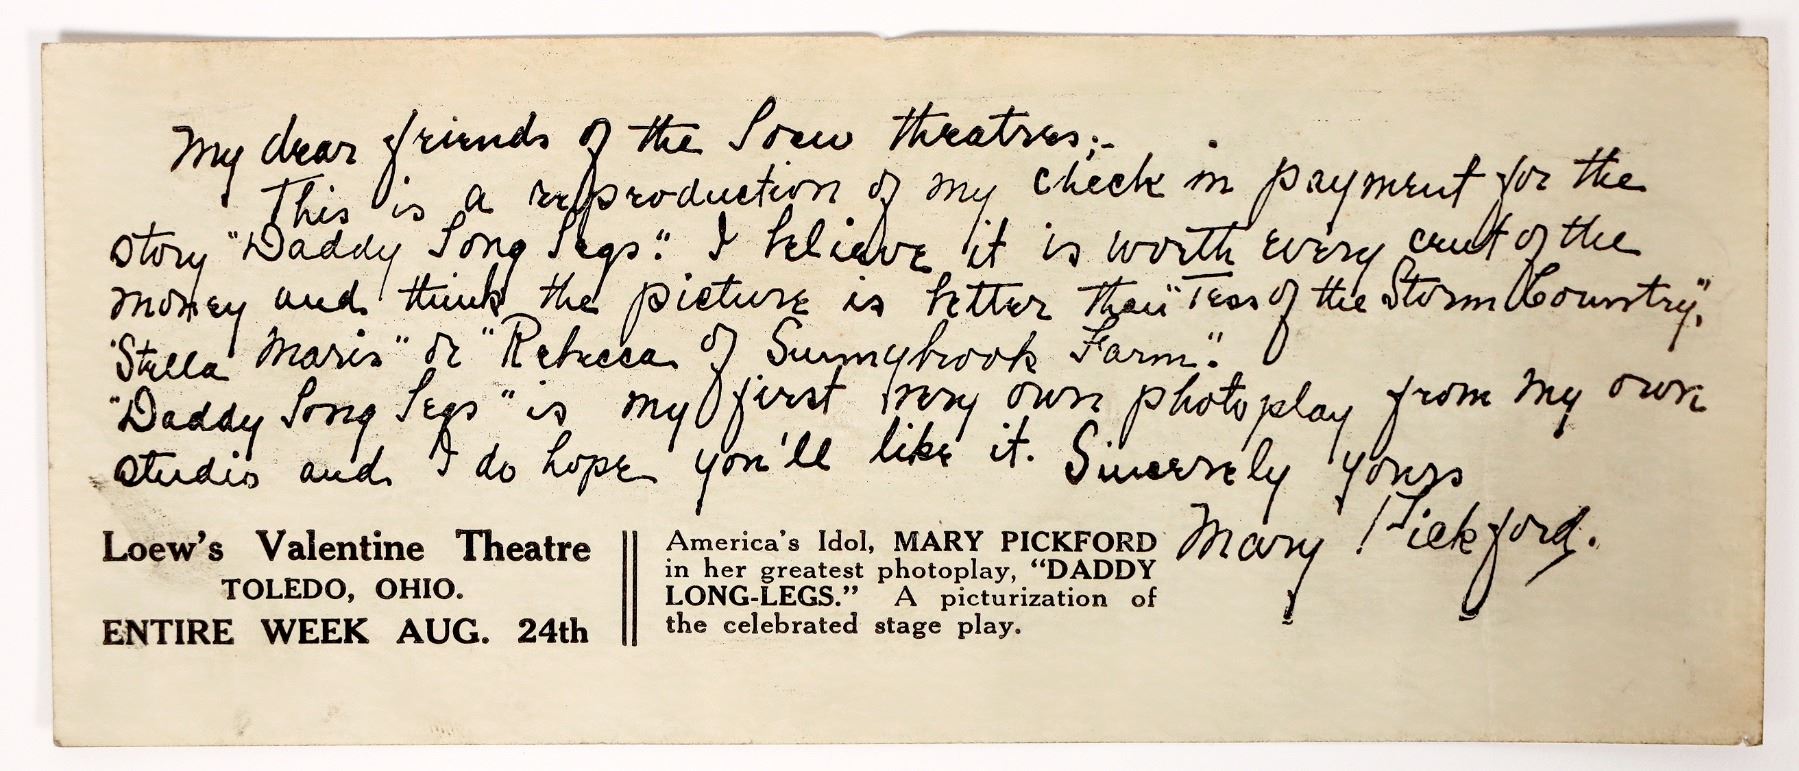 My dear friends of the Loew theatres;-
This is a reproduction of my check in payment for the
story "Daddy Long Legs". I believe it is worth every cent of the
money and think the picture is better than "Tess of the Storm Country",
"Stella Maris" or "Rebecca of Sunnybrook Farm".
"Daddy Long Legs" is my first very own photoplay from my own
studio and I do hope you'll like it. Sincerely yours
Mary Pickford.
Loew's Valentine Theatre
TOLEDO, OHIO.
ENTIRE WEEK AUG. 24th
America's Idol, MARY PICKFORD
in her greatest photoplay, "DADDY
LONG-LEGS." A picturization of
the celebrated stage play.